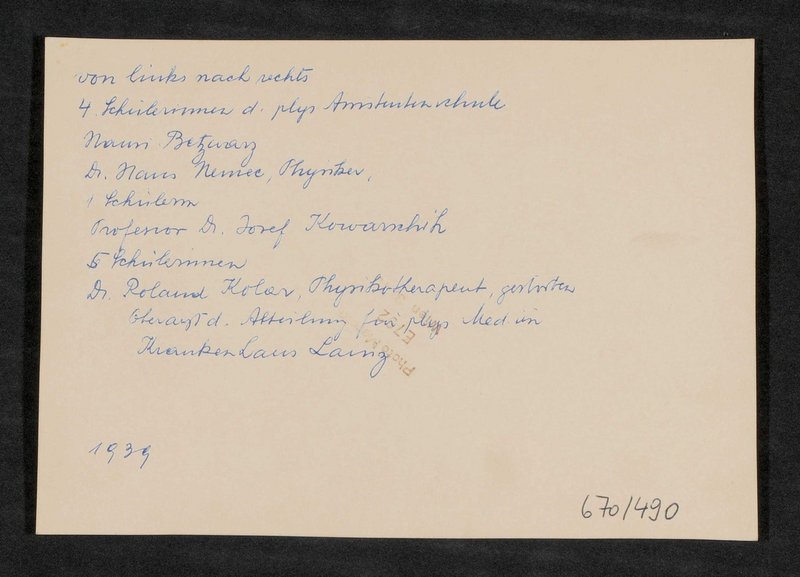 von links nach rechts
4 Schülerinnen d. phys Assistentenschule
Nauri Betzwarz
Dr. Hans Nemec, Physiker,
1 Schülerin
Professor Dr. Josef Kowarschik
5 Schülerinnen
Dr. Roland Kolar, Physikotherapeut, gestorben
Oberarzt d. Abteilung für phys Med im
Krankenhaus Lainz
Photo
E 7 2
1939
670/490